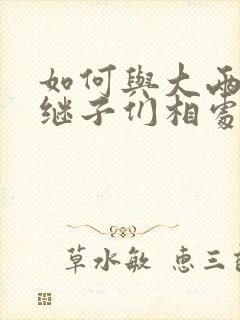 如何與大兩
继子们相處
草水敏 惠三